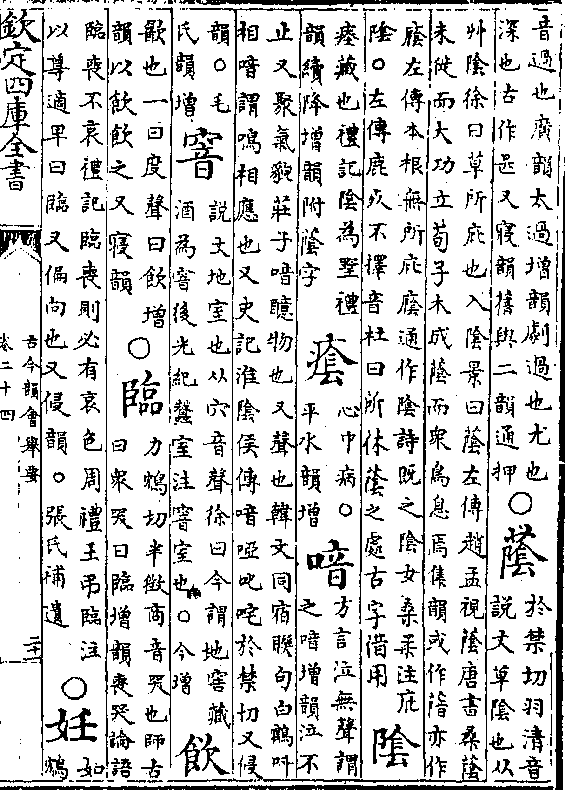 音過也廣韻太過增韻劇過也尤也
深也古作又寢韻舊與二韻通押
○蔭
於禁切羽清音
說文草陰也从
艸陰徐曰草所庇也入陰景曰蔭左傳趙孟視蔭唐書桑蔭
未徙而大功立荀子木成蔭而衆鳥息焉集韻或作䕃亦作
廕左傳本根無所庇廕通作陰詩既之陰女桑柔注庇
陰○左傳鹿死不擇音杜曰所休蔭之處古字借用
陰
瘞藏也禮記陰為壄禮
韻續降增韻附蔭字
癊
心中病○
平水韻增
喑
方言泣無聲謂
之喑增韻泣不
止又聚氣貌莊子喑醷物也又聲也韓文同宿聨句白鶴呌
相喑謂鳴相應也又史記淮陰侯傳喑啞叱咤於禁切又侵
韻○毛
氏韻增
窨
說文地室也从穴音聲徐曰今謂地窖藏
酒為窨後光紀蠶室注窨室也○今增
飲
歠也一曰度聲曰飲增
韻以飲飲之又寢韻
○臨
力鴆切半徴商音哭也師古
曰衆哭曰臨增韻喪哭論語
臨喪不哀禮記臨喪則必有哀色周禮王弔臨注
以尊適卑曰臨又偏向也又侵韻○張氏補遺
○妊
如
鴆
欽定四庫全書
古今韻會舉要
卷二十四